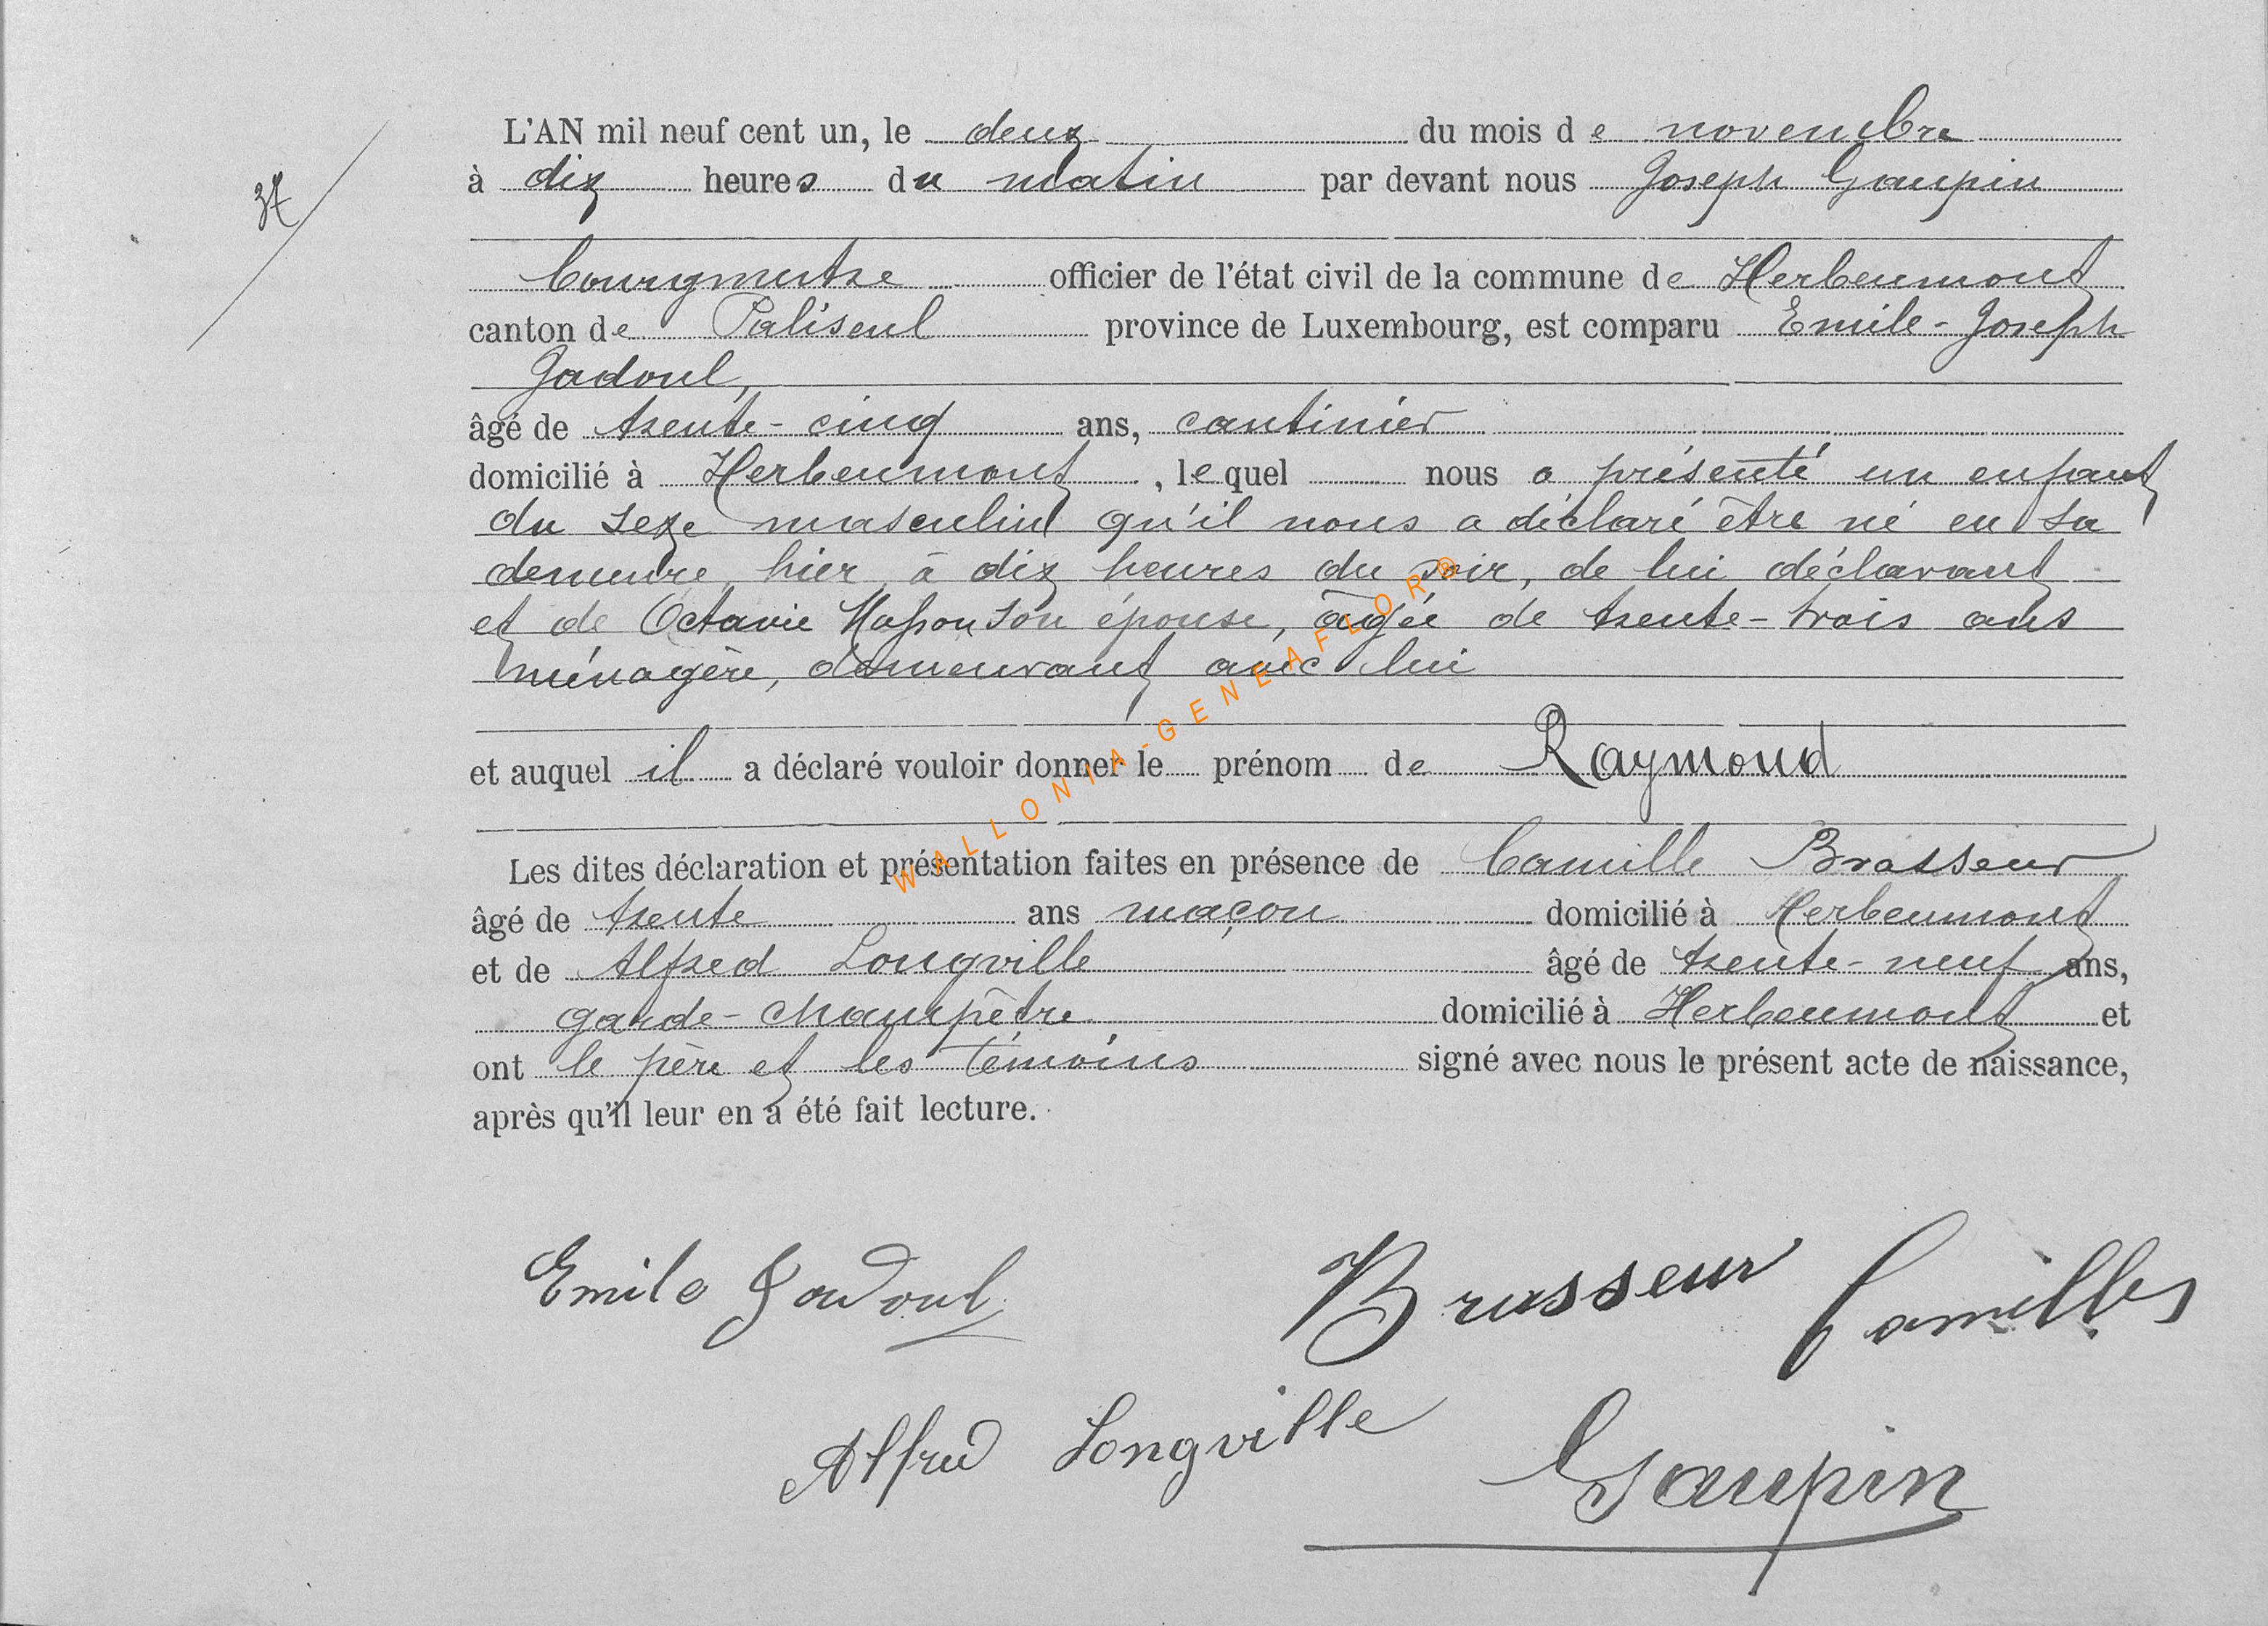 37
L'AN mil neuf cent un, le deux du mois de novembre
à dix heures du matin par devant nous Joseph Gaupin
bourgmestre officier de l'état civil de la commune de Herbeumont
canton de Paliseul province de Luxembourg, est comparu Emile-Joseph
Gadoul,
âgé de trente-cinq ans, cantinier
domicilié à Herbeumont, lequel nous a présenté un enfant
du sexe masculin qu'il nous a déclaré être né en sa
demeure, hier, à dix heures du soir, de lui déclarant
et de Octavie Masson son épouse, âgée de trente-trois ans
ménagère, demeurant avec lui
et auquel il a déclaré vouloir donner le prénom de Raymond
Les dites déclaration et présentation faites en présence de Camille Brasseur
âgé de trente ans maçon domicilié à Herbeumont
et de Alfred Longville âgé de trente-neuf ans,
garde-champêtre domicilié à Herbeumont et
ont le père et les témoins signé avec nous le présent acte de naissance,
après qu'il leur en a été fait lecture.
Emile Gadoul Brasseur Camille
Alfred Longville Gaupin
WALLONIA-GENEAFLOR®